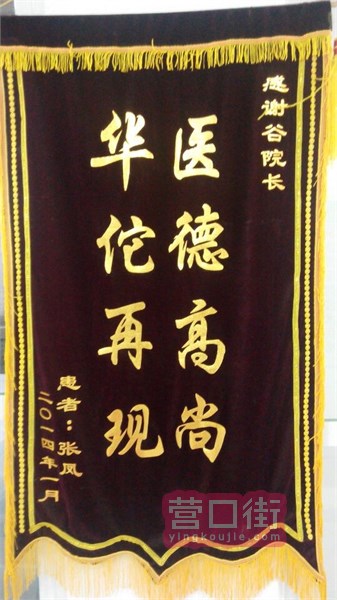 感谢谷院长
医德高尚
华佗再现
患者：张凤
二〇一四年一月
营口街
yingkoujie.com